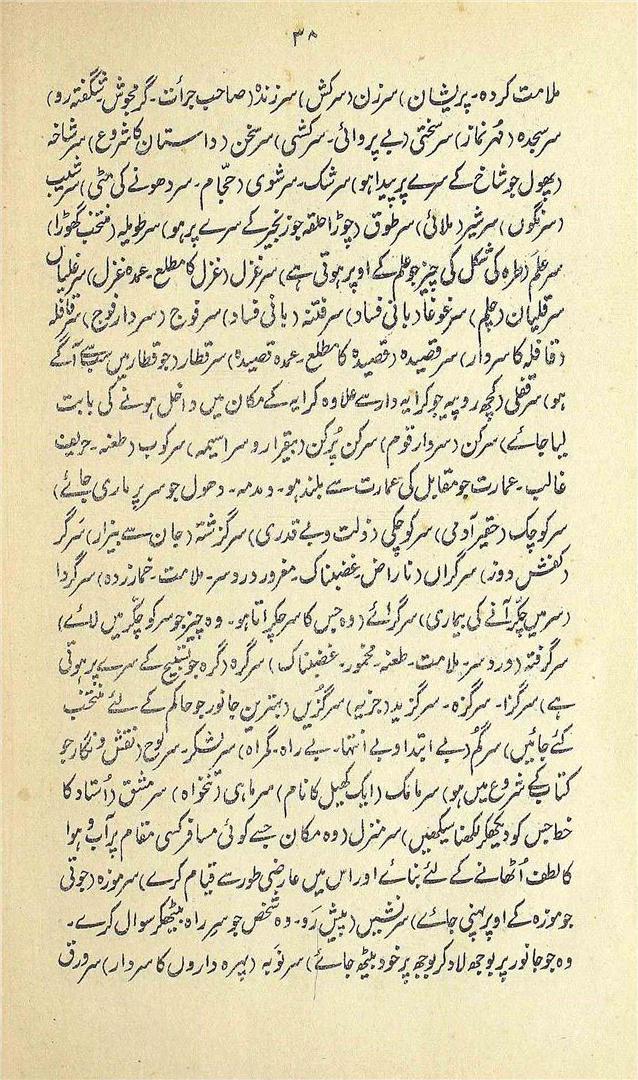 ۳۸
ملامت کردہ۔ پریشان) سرزن (سرکش) سرزندہ (صاحب جرأت۔ گرمجوش شگفتہ رو)
سرسجدہ (مُہر نماز) سرسختی (بے پروائی۔ سرکشی) سرسخن (داستان کا شروع) سرشاخہ
(پھول جو شاخ کے سرے پر پیدا ہو) سرشک۔ سرشوی (حجّام۔ سر دھونے کی مٹی) سرشیب
(سرنگوں) سرشیر (ملائی) سرطوق (چوڑا حلقہ جو زنجیر کے سرے پر ہو) سرطویلہ (منتخب گھوڑا)
سرعلم (طرہ کی شکل کی چیز جو علم کے اوپر ہوتی ہے) سرغزل (غزل کا مطلع۔ عمدہ غزل) سرغلیاں
سرقلیان (چلم) سرغوغا (بانی فساد) سرفتنہ (بانی فساد) سرفوج (سردار فوج) سرقافلہ
(قافلہ کا سردار) سرقصیدہ (قصیدہ کا مطلع۔ عمدہ قصیدہ) سرقطار (جو قطار میں سب سے آگے
ہو) سرقفلی (کچھ روپیہ جو کرایہ دار سے علاوہ کرایہ کے مکان میں داخل ہونے کی بابت
لیا جائے) سرکن (سردار قوم) سرکن پُرکن (بیقرار و سراسیمہ) سرکوب (طعنہ۔ حریف
غالب۔ عمارت جو مقابل کی عمارت سے بلند ہو۔ دمدمہ۔ دھول جو سر پر ماری جائے)
سرکوچک (حقیر آدمی) سرکوچکی (ذلت و بے قدری) سرگزشتہ (جان سے بیزار) سرگر
(کفش دوز) سرگراں (ناراض۔ غضبناک۔ مغرور دردسر۔ ملامت۔ خمارزدہ) سرگردا
(سر میں چکّر آنے کی بیماری) سرگرائے (وہ جس کا سر چکراتا ہو۔ وہ چیز جو سر کو چکّر میں لائے)
سرگرفتہ (دردسر۔ ملامت۔ طعنہ۔ مخمور۔ غضبناک) سرگرہ (گرہ جو تسبیح کے سرے پر ہوتی
ہے) سرگزا۔ سرگزہ۔ سرگزید (جزیہ) سرگزیں (بہترین جانور جو حاکم کے لئے منتخب
کئے جائیں) سرگم (بے ابتدا و بے انتہا۔ بے راہ۔ گمراہ) سرلشکر۔ سرلوح (نقش و نگار جو
کتاب کے شروع میں ہو) سرمامک (ایک کھیل کا نام) سرماہی (تنخواہ) سرمشق (اُستاد کا
خط جس کو دیکھکر لکھنا سیکھیں) سرمنزل (وہ مکان جسے کوئی مسافر کسی مقام پر آب و ہوا
کا لطف اُٹھانے کے لئے بنائے اور اس میں عارضی طور سے قیام کرے) سرموزہ (جوتی
جو موزہ کے اوپر پہنی جائے) سرنشیں (پیش رَو۔ وہ شخص جو سرِ راہ بیٹھکر سوال کرے۔
وہ جو جانور پر بوجھ لاد کر بوجھ پر خود بیٹھ جائے) سرنوبہ (پہرہ داروں کا سردار) سرورق